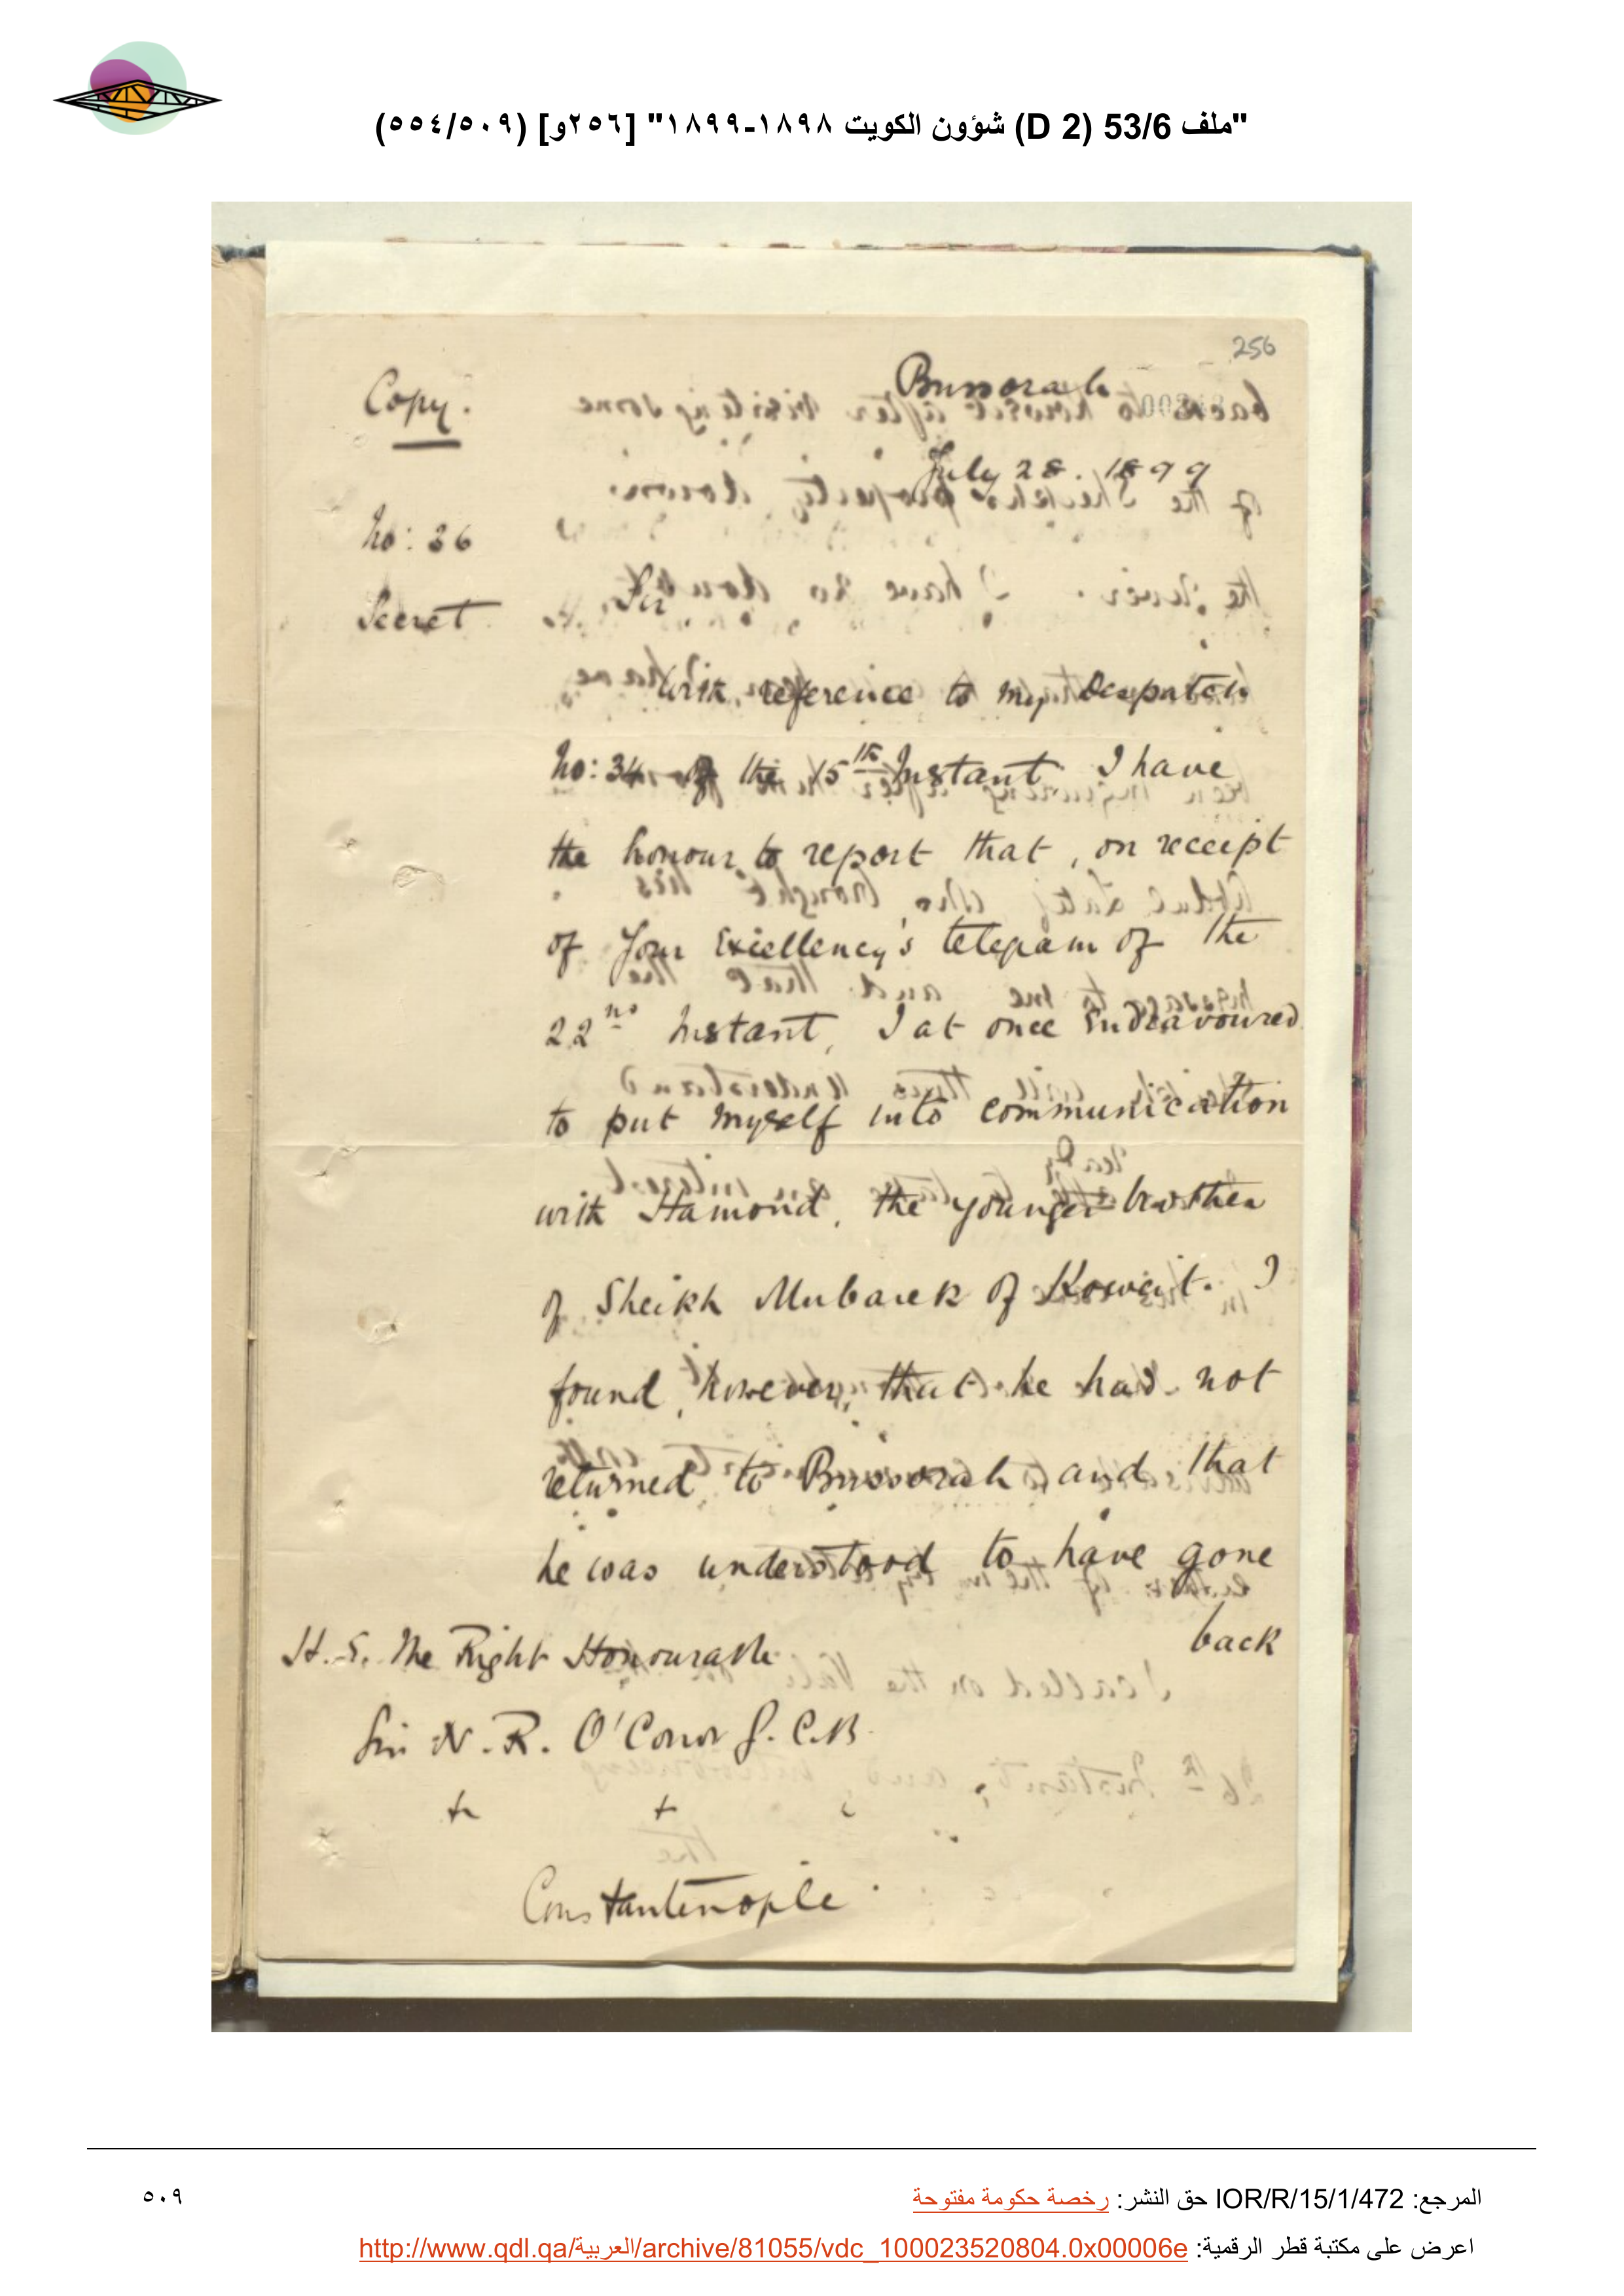 "ملف 53/6 (D 2) شؤون الكويت ١٨٩٨-١٨٩٩" [٢٥٦و] (٥٠٩/٥٥٤)
256
Copy.
Bussorah
July 28. 1899
No: 36
Secret
Sir,
With reference to my Despatch
No: 34 of the 15th Instant I have
the honour to report that, on receipt
of Your Excellency's telegram of the
22nd Instant, I at once endeavoured
to put myself into communication
with Hamond, the younger brother
of Sheikh Mubarek of Koweit. I
found, however, that he had not
returned to Bussorah and that
he was understood to have gone
back
H. E. The Right Honourable
Sir N. R. O'Conor G. C. B.
Constantinople
المرجع: IOR/R/15/1/472 حق النشر: رخصة حكومة مفتوحة
٥٠٩
اعرض على مكتبة قطر الرقمية: http://www.qdl.qa/العربية/archive/81055/vdc_100023520804.0x00006e